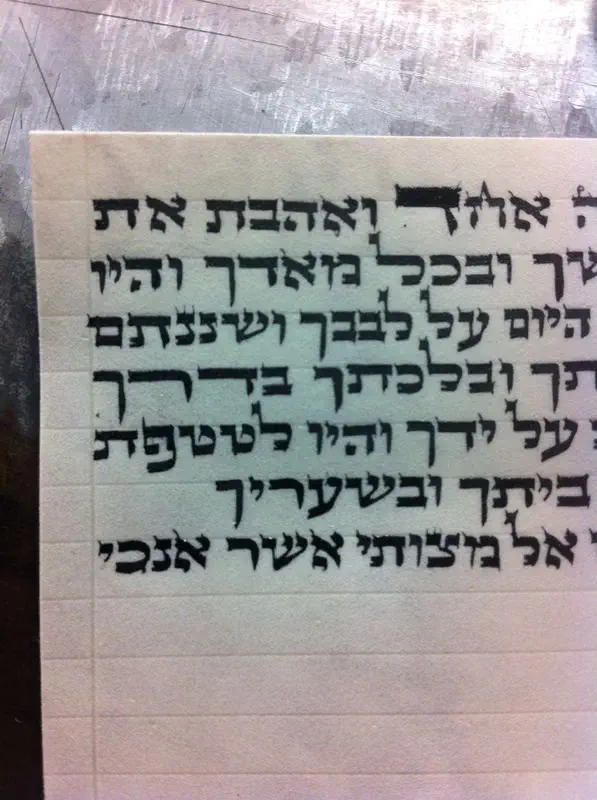 אחד ואהבת את
ובכל מאדך והיו
היום על לבבך ושננתם
ובלכתך בדרך
על ידך והיו לטטפת
ביתך ובשעריך
אל מצותי אשר אנכי